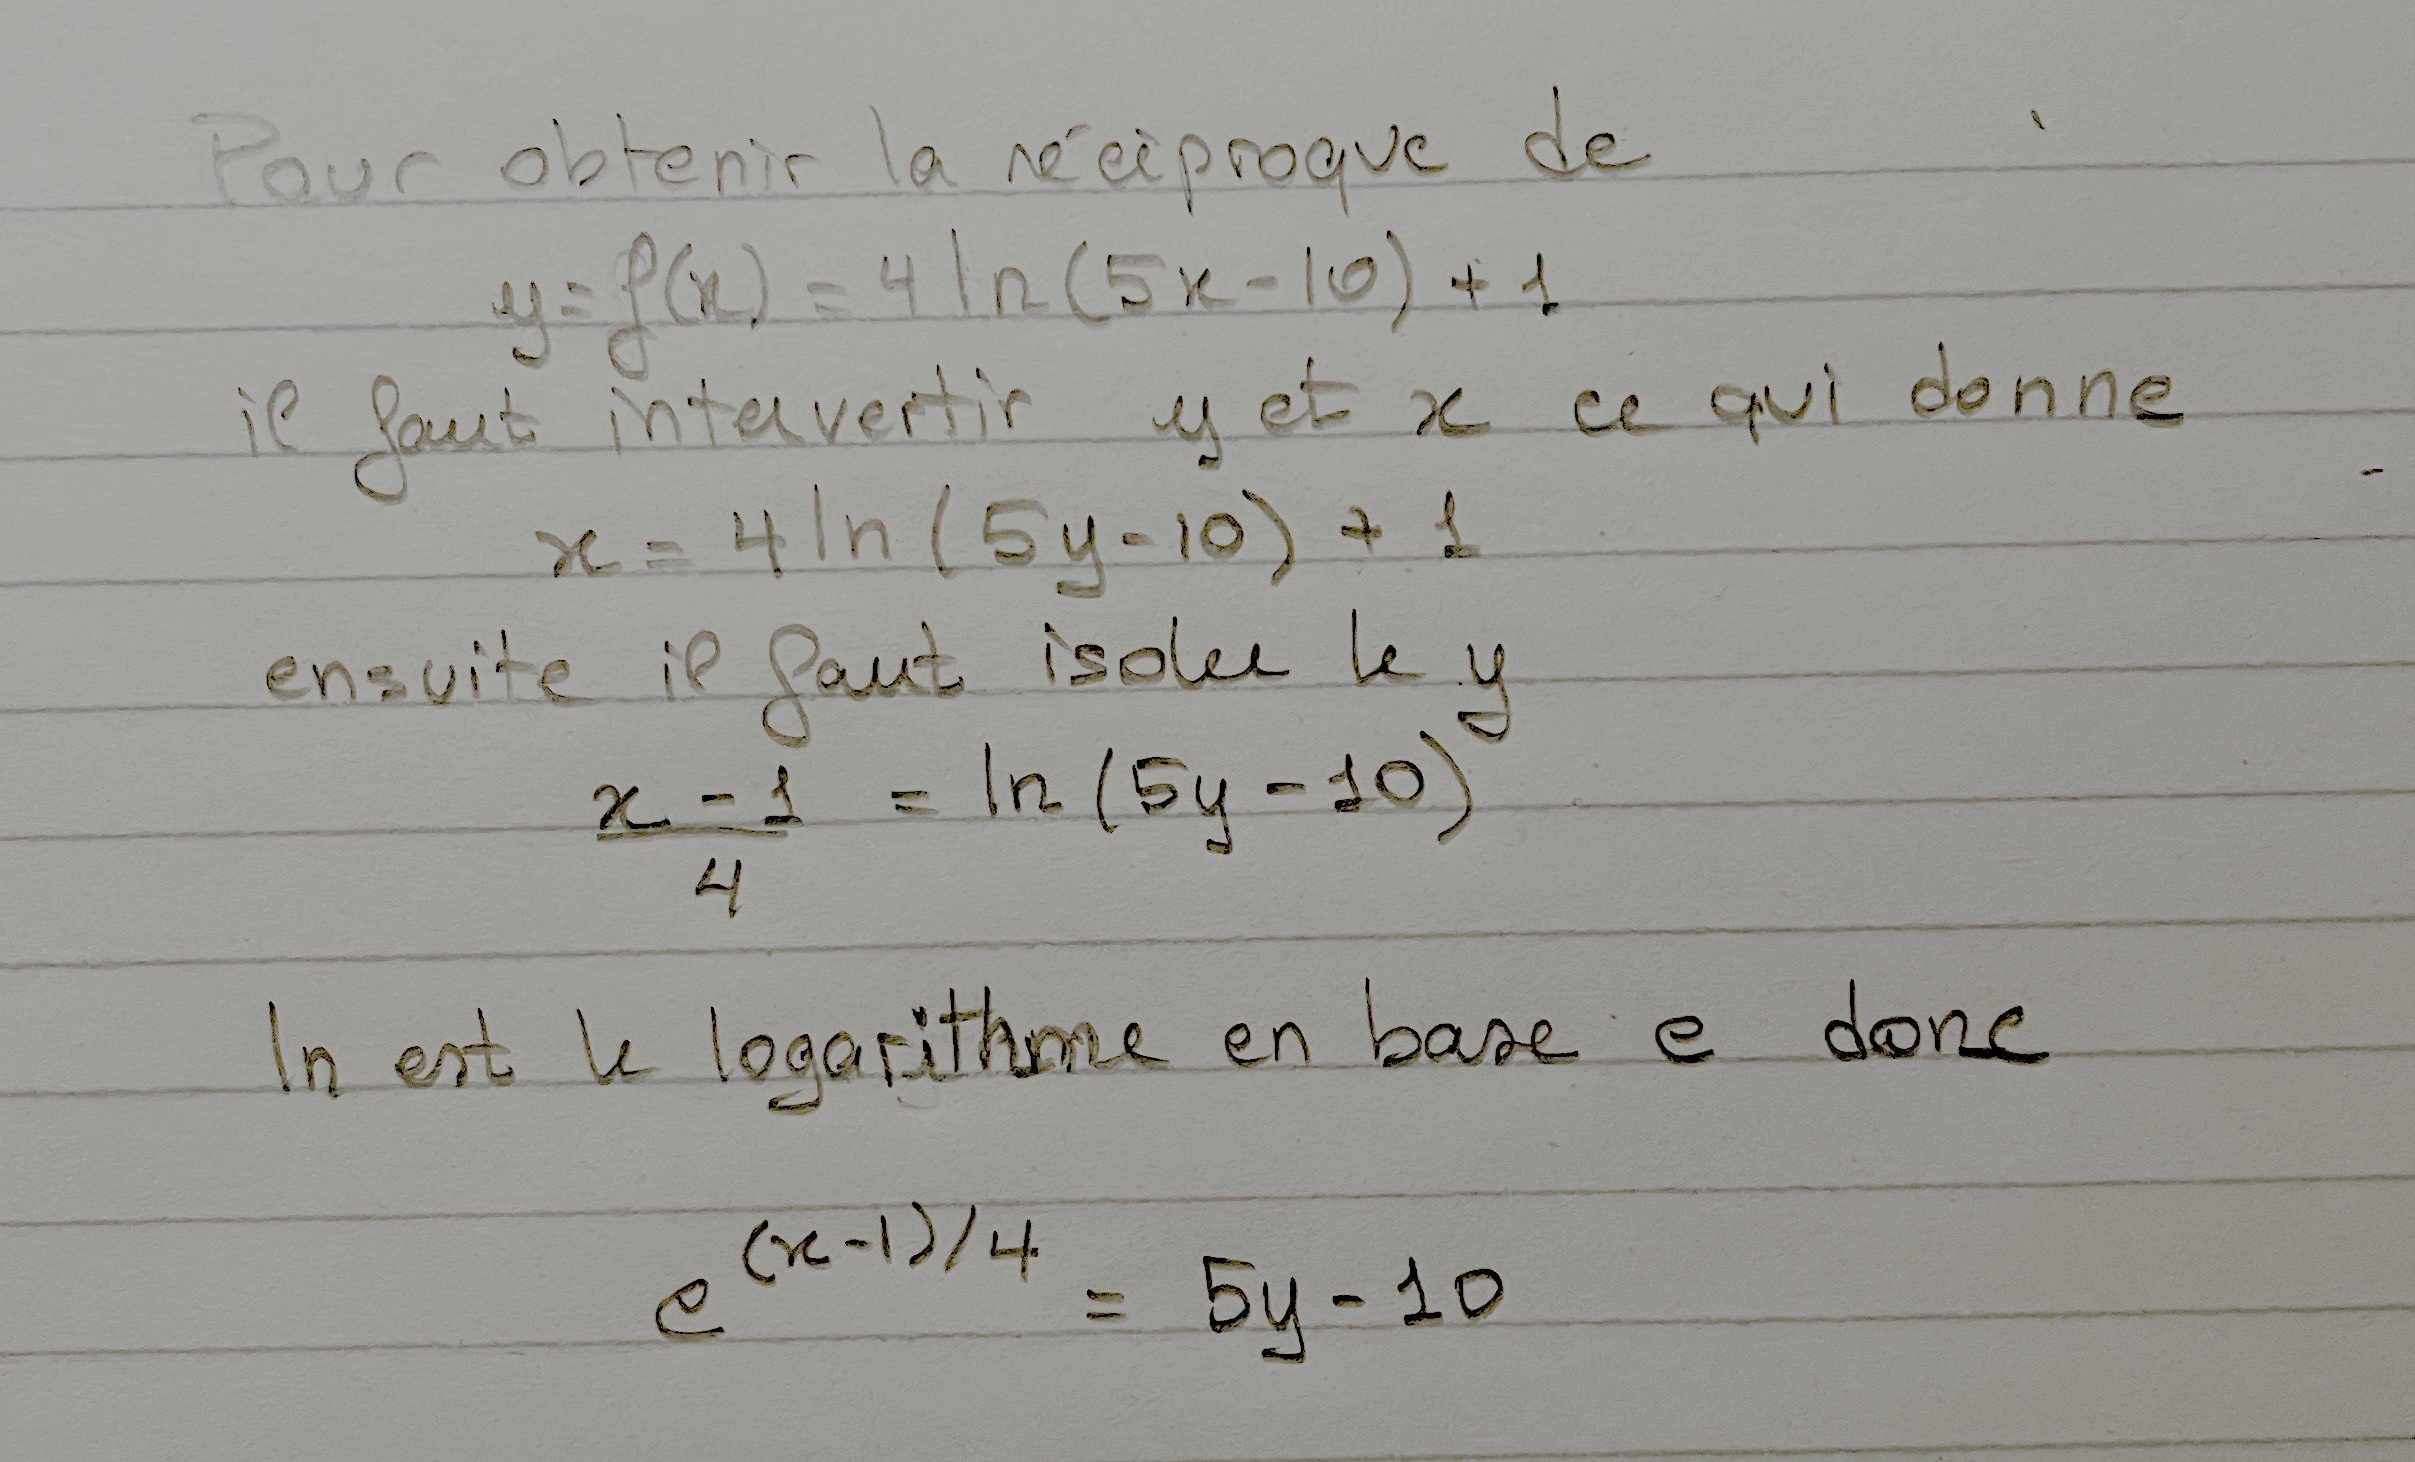 Pour obtenir la réciproque de
y = f(x) = 4 ln(5x - 10) + 1
il faut intervertir y et x ce qui donne
x = 4 ln (5y - 10) + 1
ensuite il faut isoler le y
x - 1 = ln (5y - 10)
4
ln est le logarithme en base e donc
e (x-1)/4 = 5y - 10